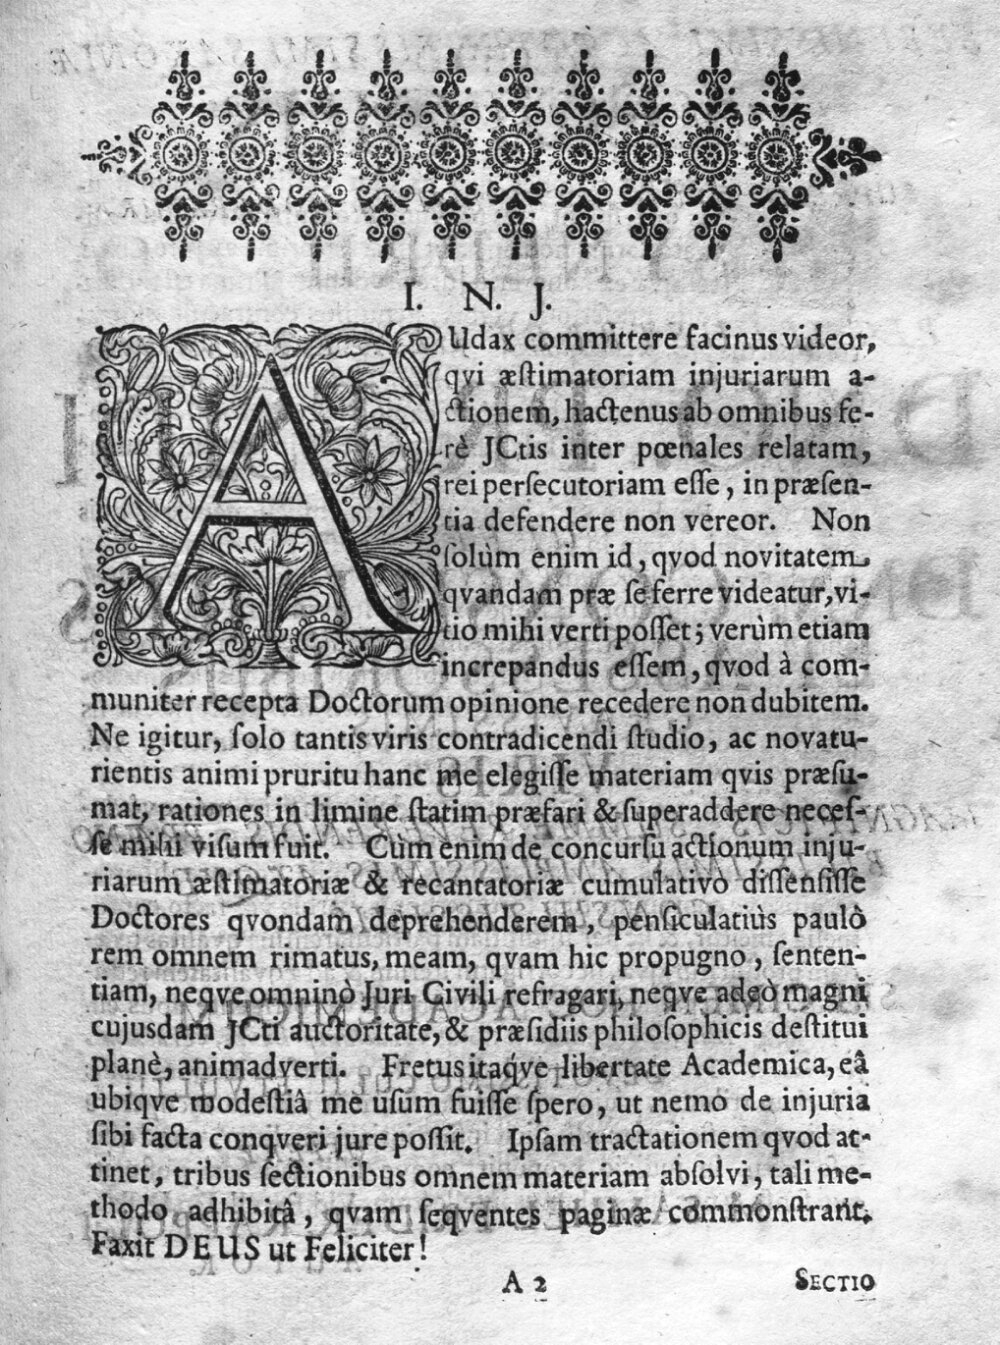 I. N. J.
AUdax committere facinus videor,
qvi æſtimatoriam injuriarum a-
ctionem, hactenus ab omnibus fe-
rè JCtis inter pœnales relatam,
rei perſecutoriam eſſe, in præſen-
tia defendere non vereor. Non
ſolùm enim id, qvod novitatem
qvandam præ ſe ferre videatur, vi-
tio mihi verti poſſet; verùm etiam
increpandus eſſem, qvod à com-
muniter recepta Doctorum opinione recedere non dubitem.
Ne igitur, ſolo tantis viris contradicendi ſtudio, ac novatu-
rientis animi pruritu hanc me elegiſſe materiam qvis præſu-
mat, rationes in limine ſtatim præfari & ſuperaddere neceſ-
ſe mihi viſum fuit. Cùm enim de concurſu actionum inju-
riarum æſtimatoriæ & recantatoriæ cumulativo diſſenſiſſe
Doctores qvondam deprehenderem, penſiculatiùs paulò
rem omnem rimatus, meam, qvam hic propugno, ſenten-
tiam, neqve omninò Juri Civili refragari, neqve adeò magni
cujusdam JCti auctoritate, & præſidiis philoſophicis deſtitui
planè, animadverti. Fretus itaq́ve libertate Academica, eâ
ubiqve modeſtiâ me uſum fuiſſe ſpero, ut nemo de injuria
ſibi facta conqveri jure poſſit. Ipſam tractationem qvod at-
tinet, tribus ſectionibus omnem materiam abſolvi, tali me-
thodo adhibitâ, qvam ſeqventes paginæ commonſtrant.
Faxit DEUS ut Feliciter!
A 2 SECTIO